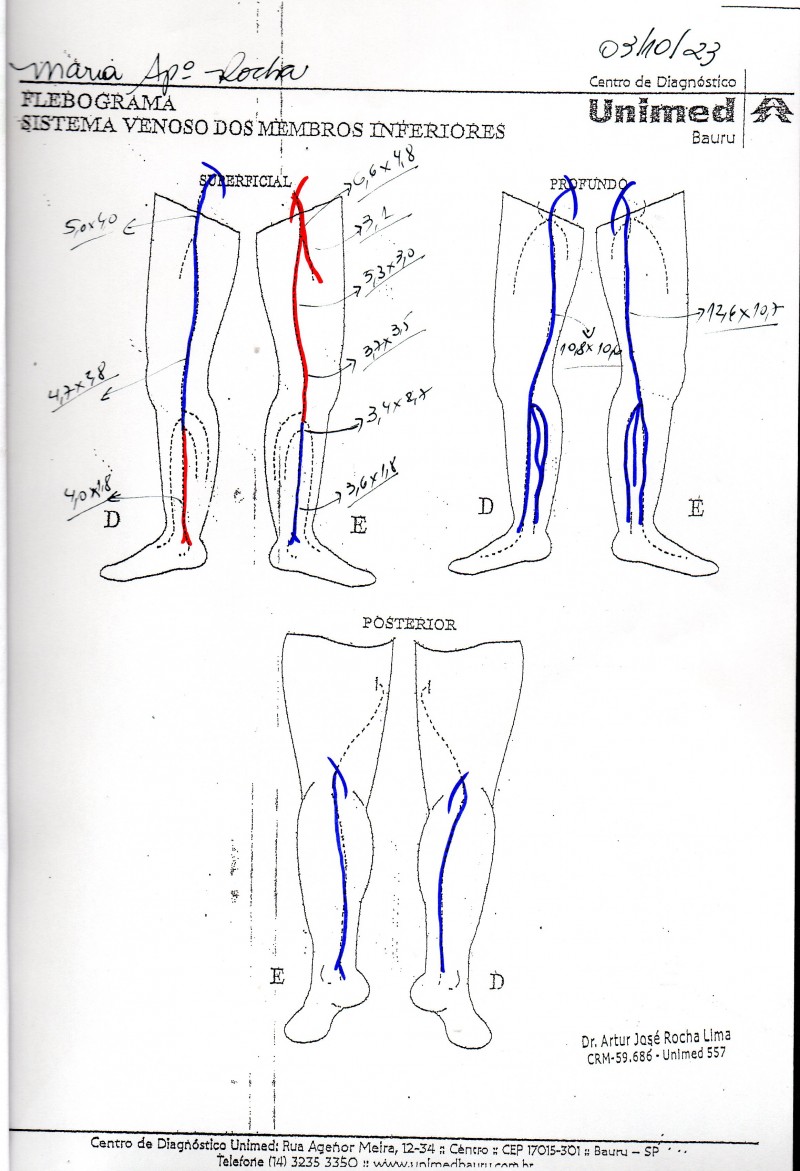 03/10/23
Maria Apª Rocha
Centro de Diagnóstico
Unimed
Bauru
FLEBOGRAMA
SISTEMA VENOSO DOS MEMBROS INFERIORES
SUPERFICIAL
PROFUNDO
6,6x4,8
5,0x4,0
3,1
5,3x3,0
12,6x10,7
3,7x3,5
4,7x3,8
3,4x2,7
4,0x1,8
3,6x1,8
D
E
D
E
POSTERIOR
E
D
Dr. Artur José Rocha Lima
CRM-59.686 - Unimed 557
Centro de Diagnóstico Unimed: Rua Agenor Meira, 12-34 :: Centro :: CEP 17015-301 :: Bauru – SP
Telefone (14) 3235 3350 :: www.unimedbauru.com.br